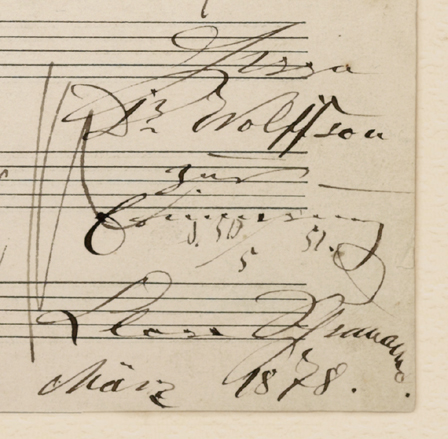 Herrn
Dr. Wolffson
zur
Erinnerung
d. 30/5 51.
Clara Schumann.
März 1878.